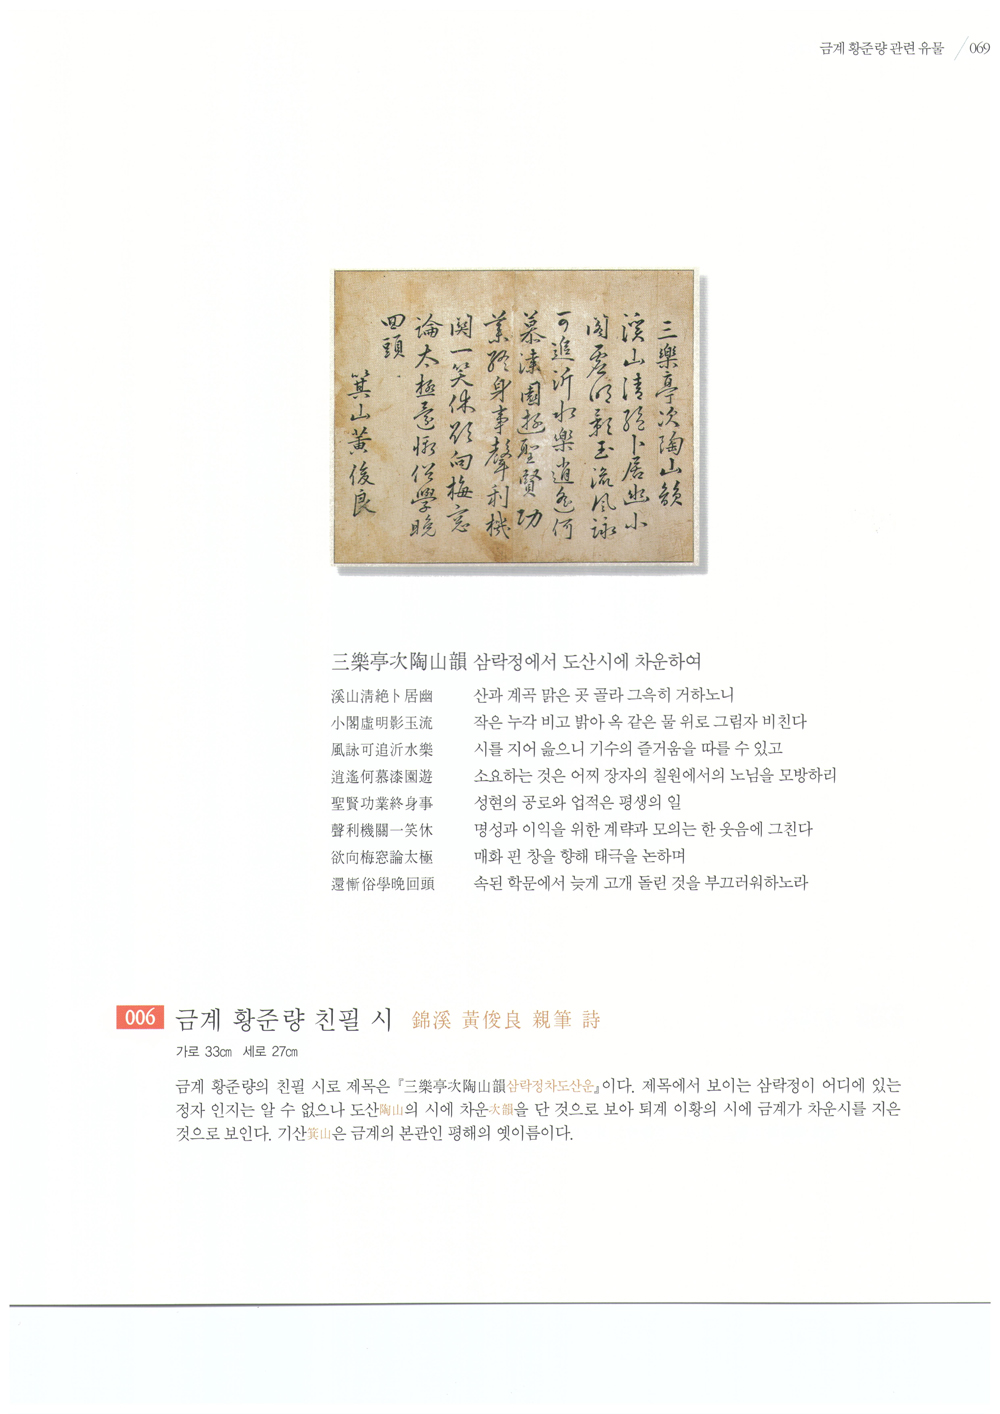 금계 황준량 관련 유물 / 069
三樂亭次陶山韻
溪山清絶卜居幽小
閣虛明影玉流風詠
可追沂水樂逍遙何
慕漆園遊聖賢功
業終身事聲利機
關一笑休欲向梅窓
論太極還慚俗學晚
回頭
箕山黃俊良
三樂亭次陶山韻 삼락정에서 도산시에 차운하여
溪山淸絶卜居幽 산과 계곡 맑은 곳 골라 그윽히 거하노니
小閣虛明影玉流 작은 누각 비고 밝아 옥 같은 물 위로 그림자 비친다
風詠可追沂水樂 시를 지어 읊으니 기수의 즐거움을 따를 수 있고
逍遙何慕漆園遊 소요하는 것은 어찌 장자의 칠원에서의 노님을 모방하리
聖賢功業終身事 성현의 공로와 업적은 평생의 일
聲利機關一笑休 명성과 이익을 위한 계략과 모의는 한 웃음에 그친다
欲向梅窓論太極 매화 핀 창을 향해 태극을 논하며
還慚俗學晩回頭 속된 학문에서 늦게 고개 돌린 것을 부끄러워하노라
006 금계 황준량 친필 시 錦溪 黃俊良 親筆 詩
가로 33㎝ 세로 27㎝
금계 황준량의 친필 시로 제목은 『三樂亭次陶山韻삼락정차도산운』이다. 제목에서 보이는 삼락정이 어디에 있는
정자 인지는 알 수 없으나 도산陶山의 시에 차운次韻을 단 것으로 보아 퇴계 이황의 시에 금계가 차운시를 지은
것으로 보인다. 기산箕山은 금계의 본관인 평해의 옛이름이다.